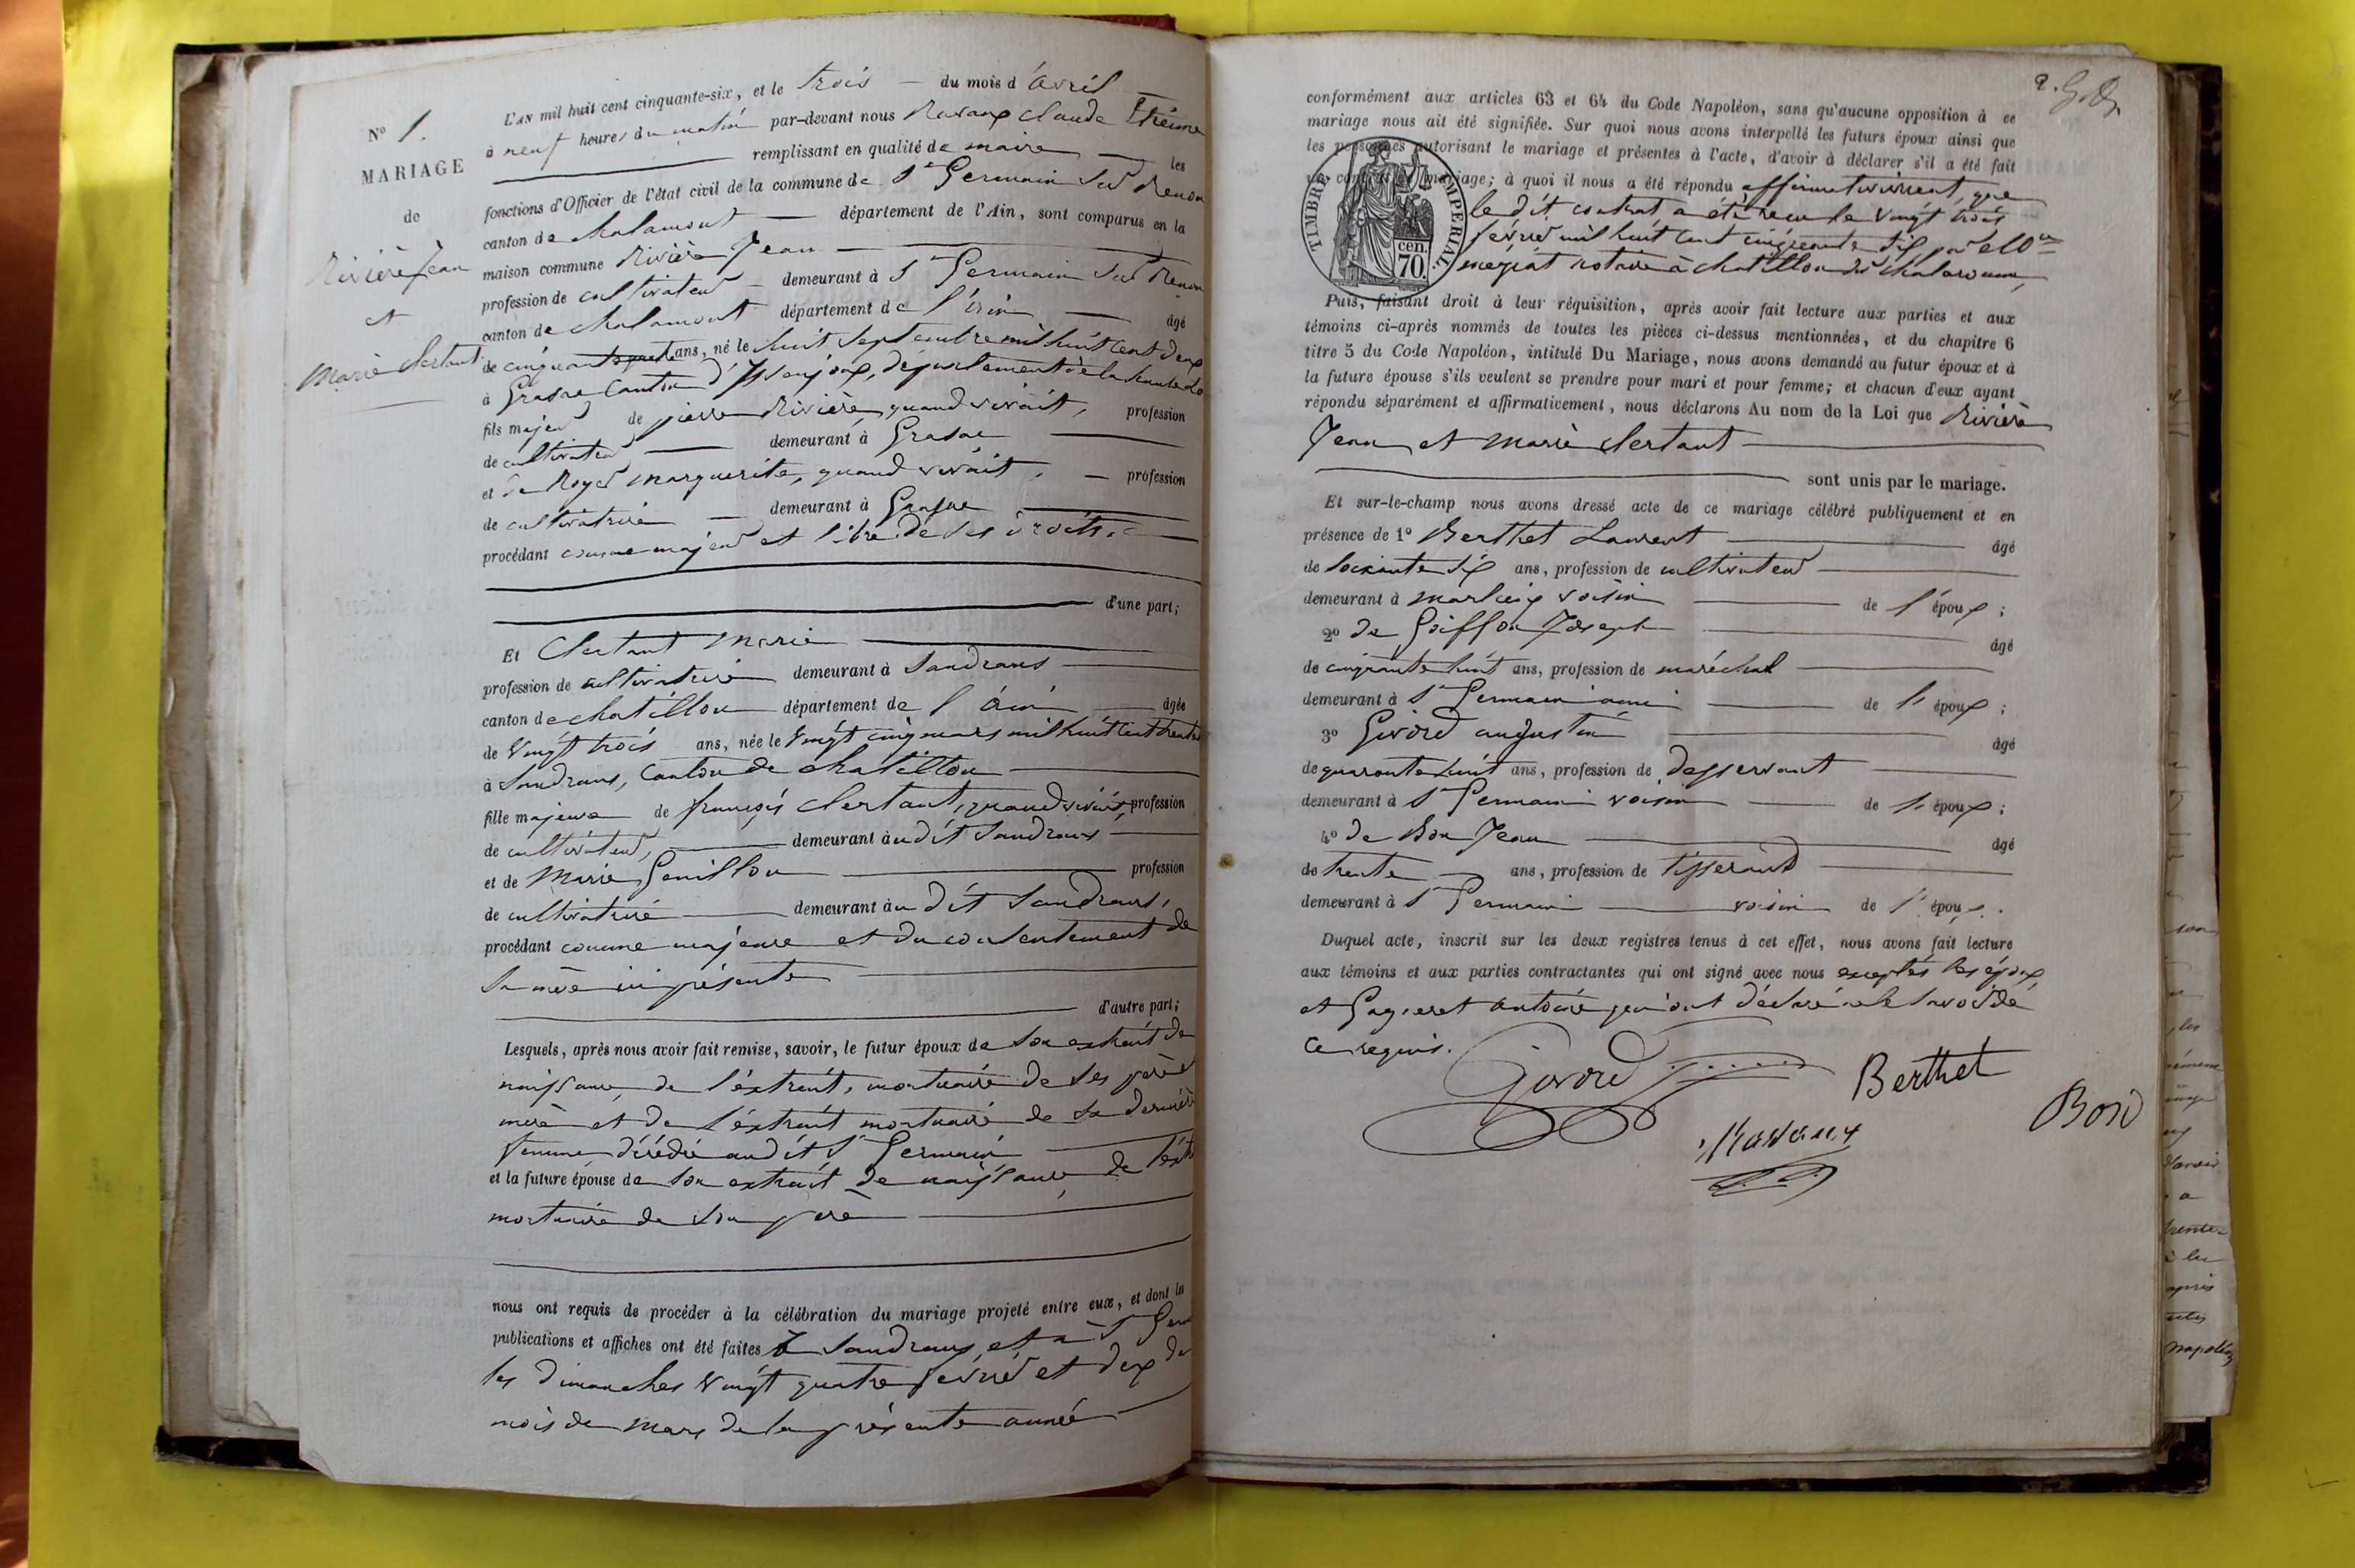 N° 1.
MARIAGE
de
Rivière Jean
et
Marie Clertant
L'AN mil huit cent cinquante-six, et le trois du mois d'avril
à neuf heures du matin par-devant nous Ravaux Claude Etienne
remplissant en qualité de maire les
fonctions d'Officier de l'état civil de la commune de St Germain sur Renon
canton de chalamont département de l'Ain, sont comparus en la
maison commune Rivière Jean
profession de cultivateur demeurant à St Germain sur Renon
canton de chalamont département de l'ain âgé
de cinquante ans, né le huit septembre mil huit cent deux
à Grazac Canton d'Yssenjoux, département de la haute Lo
fils majeur de pierre Rivière, quand vivait, profession
de cultivateur demeurant à Grazac
et de Royer marguerite, quand vivait, profession
de cultivatrice demeurant à Grazac
procédant comme majeur et libre de ses droits.
d'une part;
Et Clertant Marie
profession de cultivatrice demeurant à Sandrans
canton de chatillon département de l'ain âgée
de vingt trois ans, née le vingt cinq mars mil huit cent trente
à Sandrans, Canton de chatillon
fille majeure de françois Clertant, quand vivait, profession
de cultivateur, demeurant audit Sandrans
et de Marie Genillon profession
de cultivatrice demeurant au dit Sandrans,
procédant comme majeure et du consentement de
sa mère ici présente
d'autre part;
Lesquels, après nous avoir fait remise, savoir, le futur époux de son extrait de
naissance, de l'extrait, mortuaire de ses père
mère et de l'extrait mortuaire de sa dernière
femme décédée audit St Germain
et la future épouse de son extrait de naissance, de l'ext
mortuaire de son père
nous ont requis de procéder à la célébration du mariage projeté entre eux, et dont les
publications et affiches ont été faites à Sandrans, et à St Germ
les dimanches vingt quatre février et deux du
mois de mars de la présente année
conformément aux articles 63 et 64 du Code Napoléon, sans qu'aucune opposition à ce
mariage nous ait été signifiée. Sur quoi nous avons interpellé les futurs époux ainsi que
les personnes autorisant le mariage et présentes à l'acte, d'avoir à déclarer s'il a été fait
un contrat de mariage; à quoi il nous a été répondu affirmativement, que
le dit contrat a été recu le vingt trois
février mil huit cent cinquante six par Me
notaire à chatillon sur chalaronne,
TIMBRE IMPERIAL.
cen.
70.
Puis, faisant droit à leur réquisition, après avoir fait lecture aux parties et aux
témoins ci-après nommés de toutes les pièces ci-dessus mentionnées, et du chapitre 6
titre 5 du Code Napoléon, intitulé Du Mariage, nous avons demandé au futur époux et à
la future épouse s'ils veulent se prendre pour mari et pour femme; et chacun d'eux ayant
répondu séparément et affirmativement, nous déclarons Au nom de la Loi que Rivière
Jean et Marie Clertant
sont unis par le mariage.
Et sur-le-champ nous avons dressé acte de ce mariage célébré publiquement et en
présence de 1° Berthet Laurent âgé
de soixante six ans, profession de cultivateur
demeurant à marlieux voisin de l'époux;
2° de Joseph âgé
de cinquante huit ans, profession de maréchal
demeurant à St Germain ami de l'époux;
3° Givord augustin âgé
de quarante huit ans, profession de desservant
demeurant à St Germain voisin de l'époux;
4° de Bon Jean âgé
de trente ans, profession de tisserand
demeurant à St Germain voisin de l'époux.
Duquel acte, inscrit sur les deux registres tenus à cet effet, nous avons fait lecture
aux témoins et aux parties contractantes qui ont signé avec nous exceptés les époux
et antoine qui ont déclaré ne le savoir de
ce requis.
Givord
Berthet
Ravaux
Bon